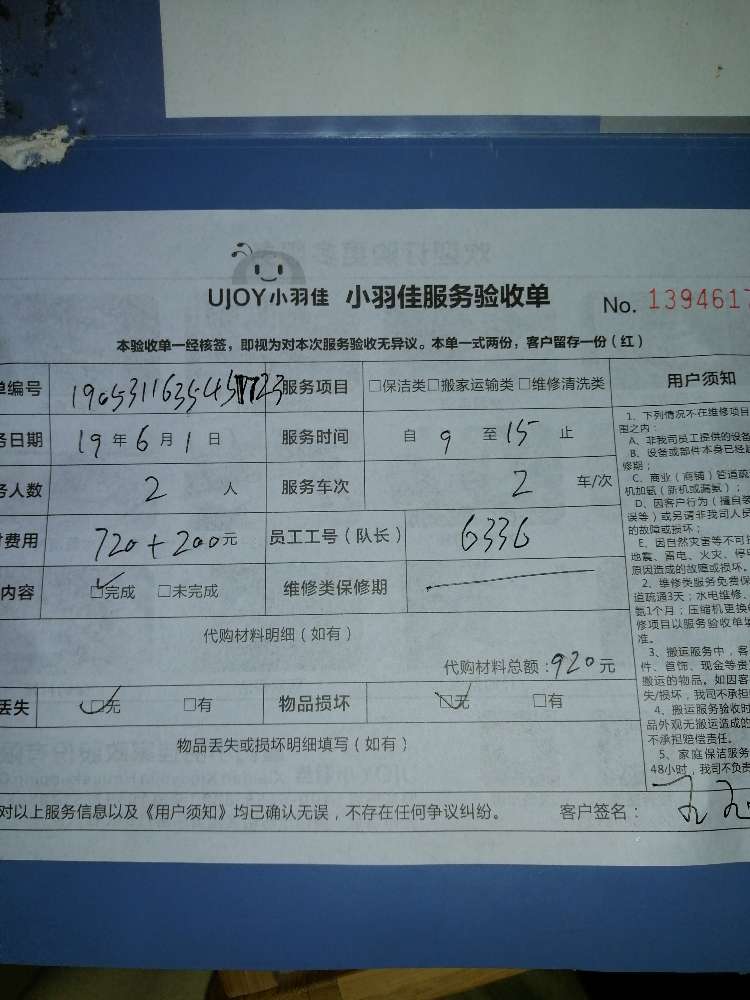 UJOY小羽佳 小羽佳服务验收单 No. 1394617
本验收单一经核签，即视为对本次服务验收无异议。本单一式两份，客户留存一份（红）
单编号 服务项目 □保洁类□搬家运输类□维修清洗类 用户须知
务日期 19年6月1日 服务时间 自 9 至 15 止
务人数 2 人 服务车次 2 车/次
费用 720+200元 员工工号（队长） 6336
内容 □完成 □未完成 维修类保修期
代购材料明细（如有）
代购材料总额：920元
丢失 □无 □有 物品损坏 □无 □有
物品丢失或损坏明细填写（如有）
对以上服务信息以及《用户须知》均已确认无误，不存在任何争议纠纷。 客户签名：
1、下列情况不在维修项目
围之内：
A、非我司员工提供的设备
B、设备或部件本身已经超
修期；
C、商业（商铺）管道疏
机加氨（新机或漏氨）；
D、因客户行为（擅自装
误等）或另请非我司人员
的故障或损坏；
E、因自然灾害等不可抗
地震、雷电、火灾、停电
原因造成的故障或损坏。
2、维修类服务免费保
道疏通3天；水电维修、
氨1个月；压缩机更换
修项目以服务验收单
准。
3、搬运服务中，客
件、首饰、现金等贵
搬运的物品。如因客
失/损坏，我司不承担
4、搬运服务验收时
品外观无搬运造成的
不承担赔偿责任。
5、家庭保洁服务
48小时，我司不负责